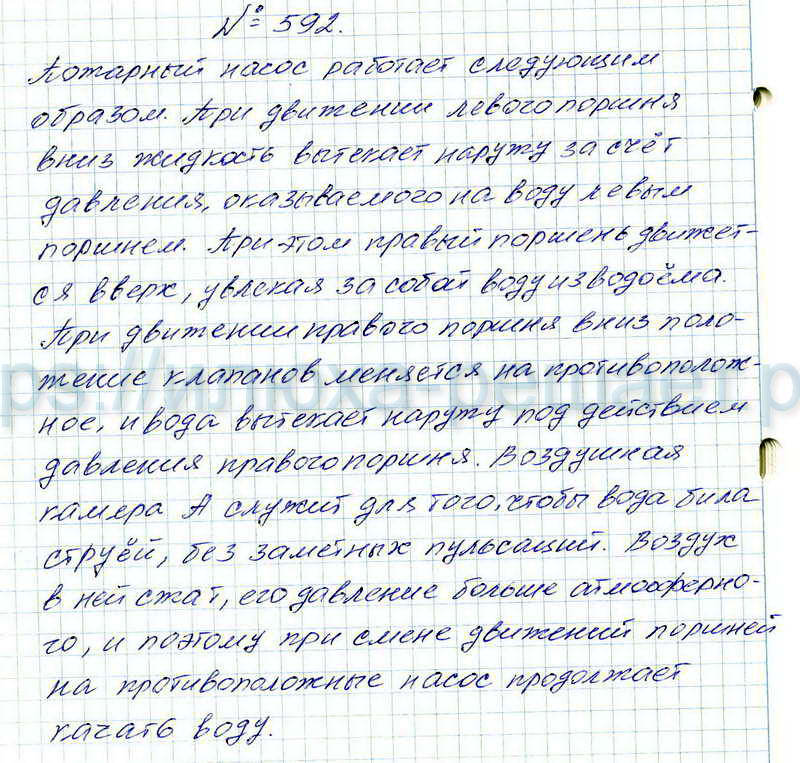 № 592.
Пожарный насос работает следующим
образом. При движении левого поршня
вниз жидкость вытекает наружу за счёт
давления, оказываемого на воду левым
поршнем. При этом правый поршень движет-
ся вверх, увлекая за собой воду из водоёма.
При движении правого поршня вниз поло-
жение клапанов меняется на противополож-
ное, и вода вытекает наружу под действием
давления правого поршня. Воздушная
камера А служит для того, чтобы вода била
струёй, без заметных пульсаций. Воздух
в ней сжат, его давление больше атмосферно-
го, и поэтому при смене движений поршней
на противоположные насос продолжает
качать воду.